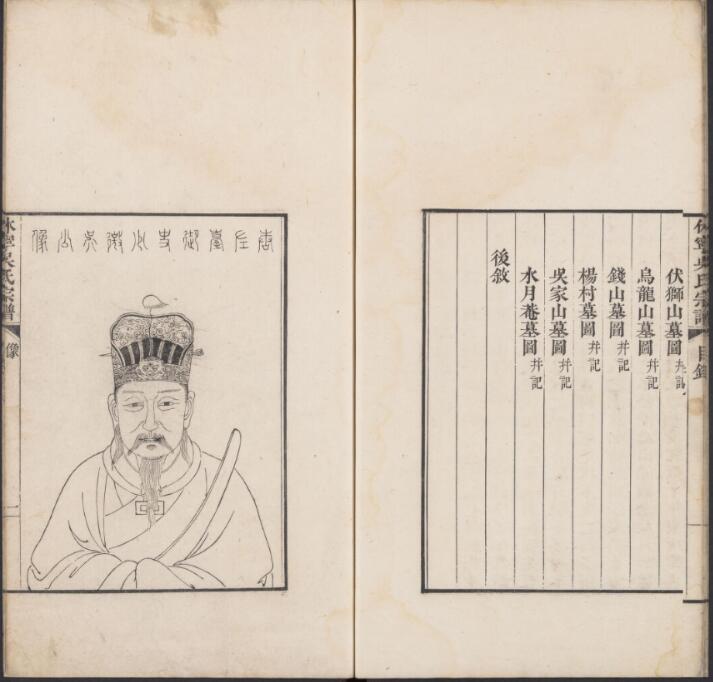 休寧吳氏宗譜 目錄
伏獅山墓圖 并記
烏龍山墓圖 并記
錢山墓圖 并記
楊村墓圖 并記
吳家山墓圖 并記
水月菴墓圖 并記
後敘
唐左臺御史少微吳公像
休寧吳氏宗譜 像 一